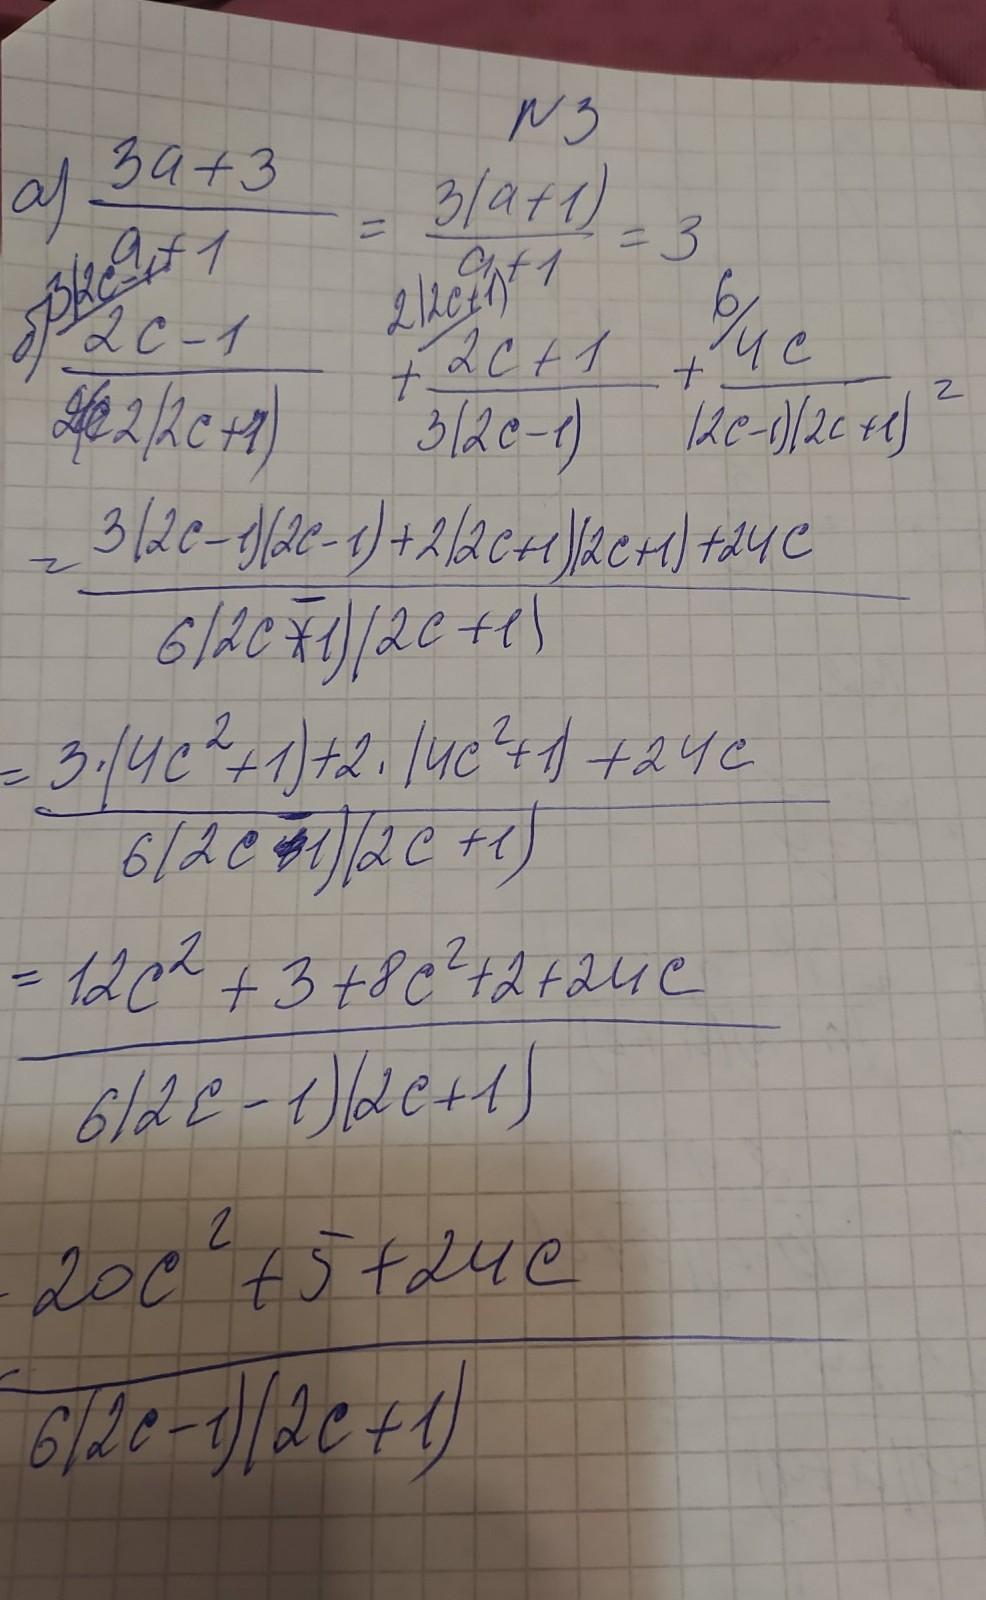 N3
а) 3a+3 / a+1 = 3(a+1) / a+1 = 3
б) 3(2c-1)/ 2c-1 / 2(2c+1) + 2(2c+1)/ 2c+1 / 3(2c-1) + 6/ 4c / (2c-1)(2c+1) =
= 3(2c-1)(2c-1)+2(2c+1)(2c+1)+24c / 6(2c-1)(2c+1)
= 3·(4c²+1)+2·(4c²+1)+24c / 6(2c-1)(2c+1)
= 12c²+3+8c²+2+24c / 6(2c-1)(2c+1)
20c²+5+24c / 6(2c-1)(2c+1)